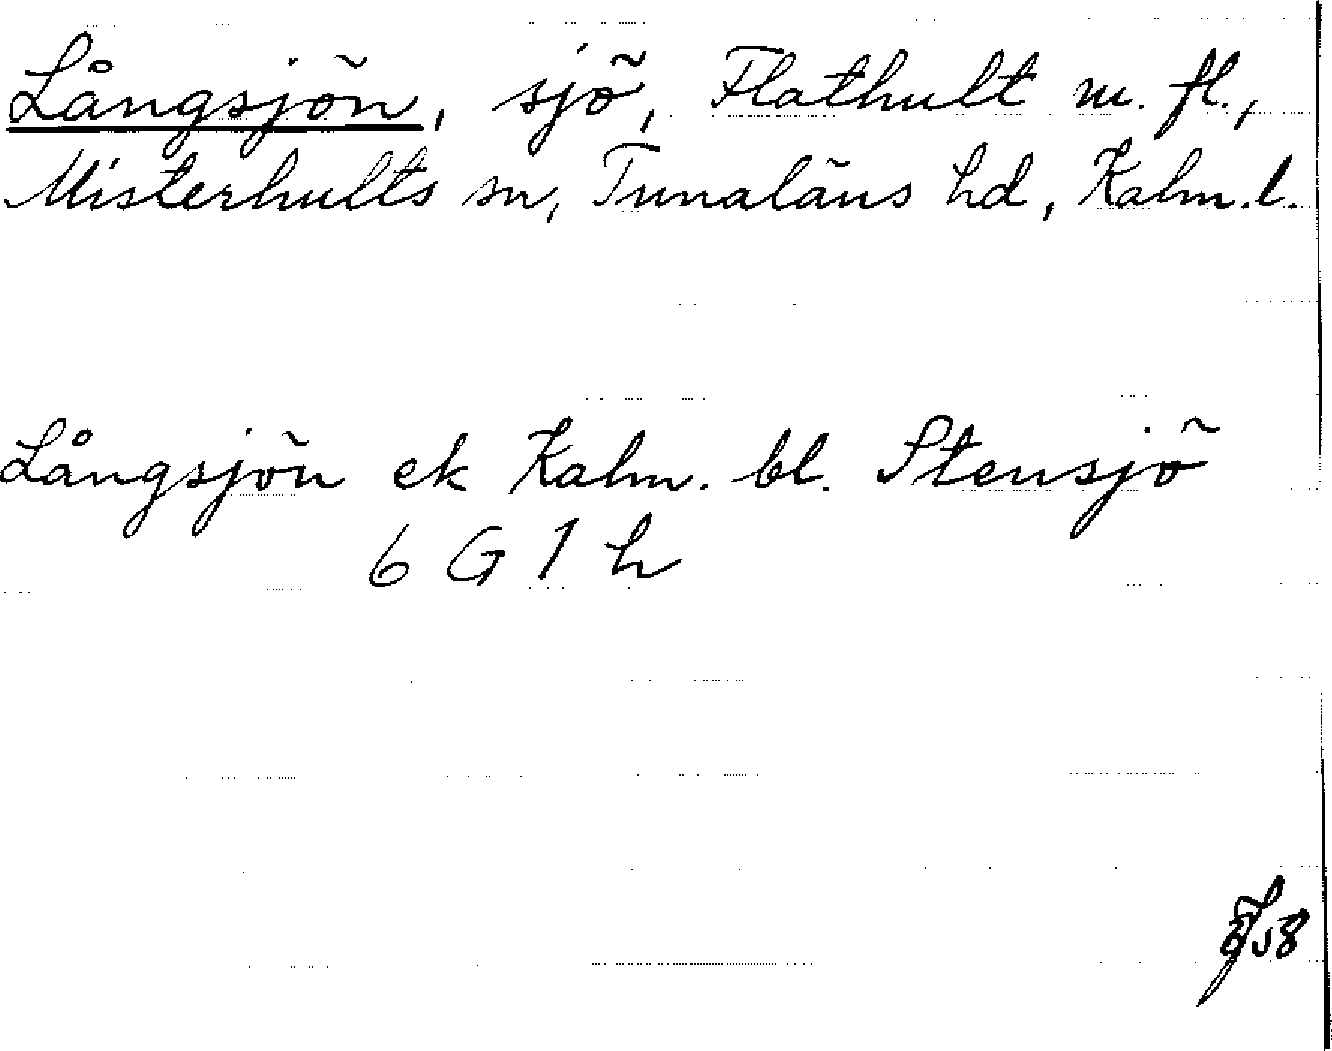 Långsjön, sjö, Flathult m. fl.,
Misterhults sn, Tunaläns hd, Kalm.l.
Långsjön ek Kalm. bl. Stensjö
6 G 1 h